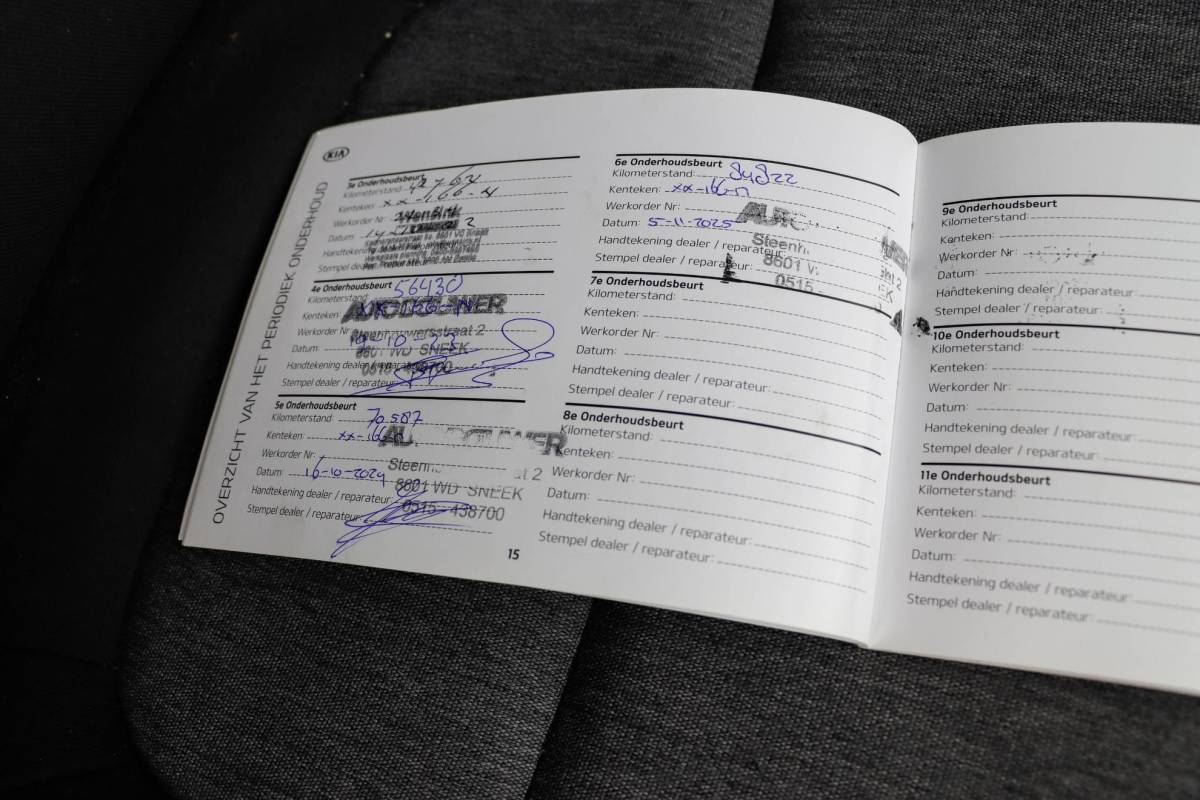 KIA
OVERZICHT VAN HET PERIODIEK ONDERHOUD
3e Onderhoudsbeurt
Kilometerstand: 42764
Kenteken:
Werkorder Nr:
Datum:
Handtekening dealer / reparateur:
Stempel dealer / reparateur:
4e Onderhoudsbeurt
Kilometerstand: 56430
Kenteken:
Werkorder Nr:
Datum:
Handtekening dealer / reparateur:
Stempel dealer / reparateur:
Steenhouwersstraat 2
8601 WD SNEEK
0515 - 438700
5e Onderhoudsbeurt
Kilometerstand: 70.587
Kenteken: xx-166-
Werkorder Nr:
Datum: 16-10-2024
Handtekening dealer / reparateur:
Stempel dealer / reparateur:
8601 WD SNEEK
0515-438700
15
6e Onderhoudsbeurt
Kilometerstand: 84822
Kenteken: xx-166-n
Werkorder Nr:
Datum: 5-11-2025
Handtekening dealer / reparateur:
Stempel dealer / reparateur:
8601
0515
7e Onderhoudsbeurt
Kilometerstand:
Kenteken:
Werkorder Nr:
Datum:
Handtekening dealer / reparateur:
Stempel dealer / reparateur:
8e Onderhoudsbeurt
Kilometerstand:
Kenteken:
Werkorder Nr:
Datum:
Handtekening dealer / reparateur:
Stempel dealer / reparateur:
9e Onderhoudsbeurt
Kilometerstand:
Kenteken:
Werkorder Nr:
Datum:
Handtekening dealer / reparateur:
Stempel dealer / reparateur:
10e Onderhoudsbeurt
Kilometerstand:
Kenteken:
Werkorder Nr:
Datum:
Handtekening dealer / reparateur:
Stempel dealer / reparateur:
11e Onderhoudsbeurt
Kilometerstand:
Kenteken:
Werkorder Nr:
Datum:
Handtekening dealer / reparateur:
Stempel dealer / reparateur: